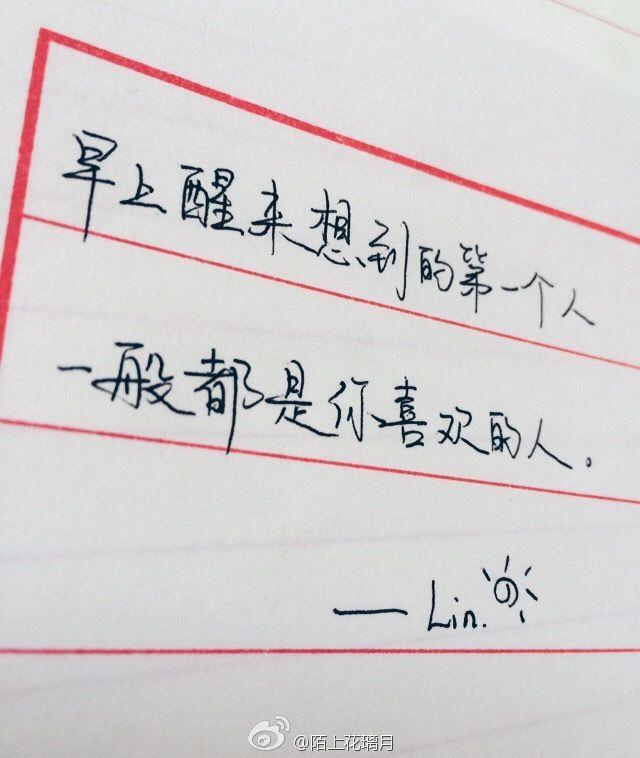 早上醒来想到的第一个人
一般都是你喜欢的人。
——Lin.
@陌上花璃月